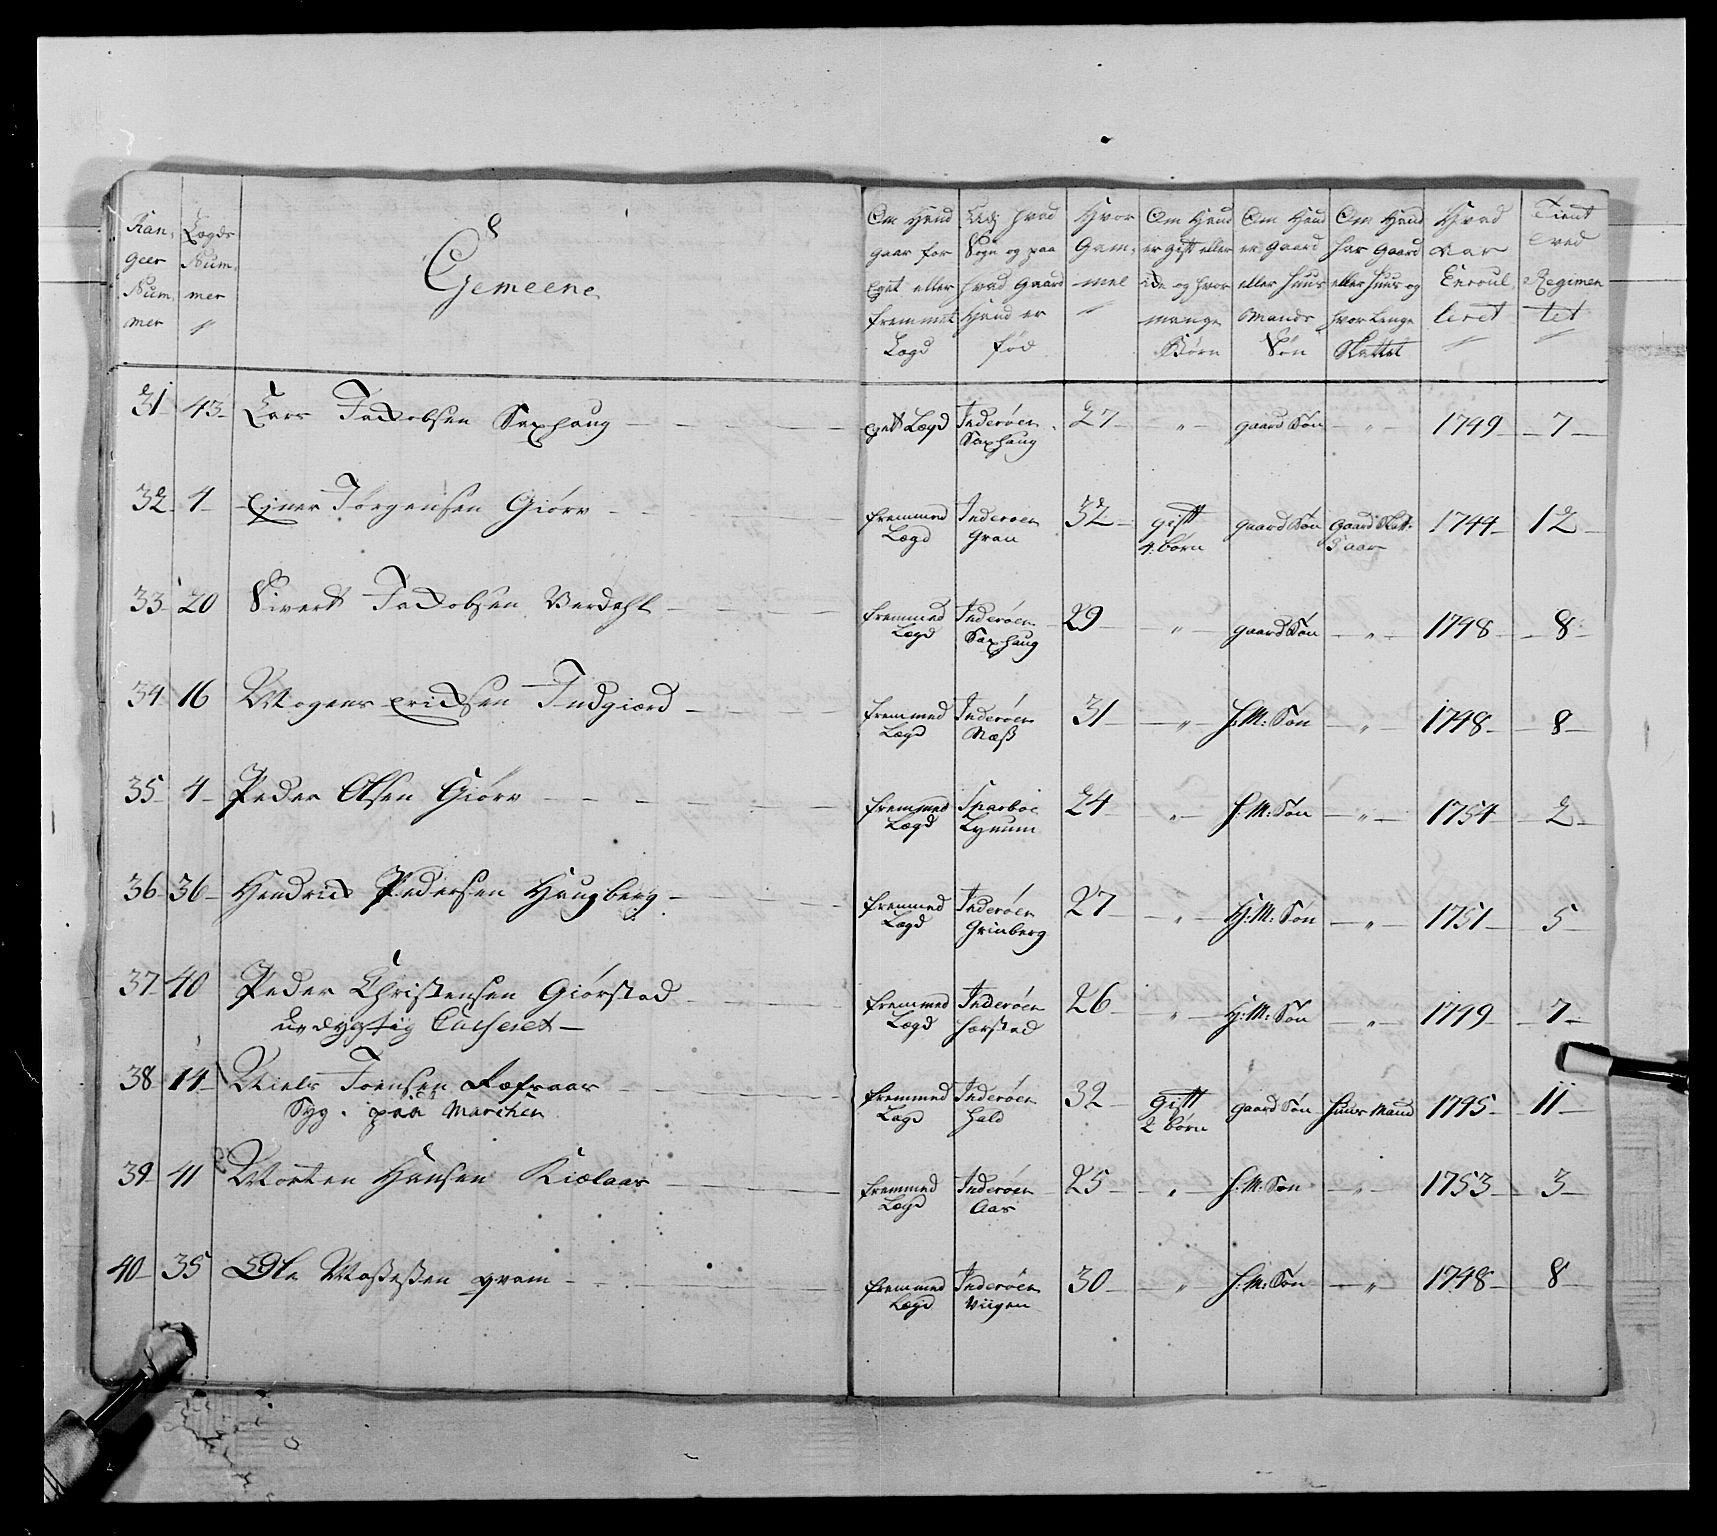 Ran, Lægds
geer Num,
Num, mer
mer
Gemeene
Om Hand gaar for Eget eller fremmet Lægd
Udj hvad Sogn og paa hvad Gaard Hand er fød
Hvor Gam, mel
Om Hand er Gift eller Ide og hvor mange Børn
Om Hand er Gaard eller Huus Mands Søn
Om Hand har Gaard eller Huus og hvor Lenge Skattet
Hvad Aar Enroul, leret
Tient ved Regimen tet
31 43 Lars Jackobsen Saxhaug eget Lægd Inderøen Saxhaug 27 " gaard Søn " 1749 7
32 4 Ejner Jørgensen Giørv fremmed Lægd Inderøen Gran 32 gift 4: børn gaard Søn Gaard Skatt: 5 aar 1744 12
33 20 Sivert Jackobsen Verdahl fremmed Lægd Inderøen Saxhaug 29 " gaard Søn " 1748 8
34 16 Mogens Ericksen Indgiærd fremmed Lægd Inderøen Næss 31 " H: M: Søn " 1748 8
35 4 Peder Olsen Giørv fremmed Lægd Sparboe Lynum 24 " H: M: Søn " 1754 2
36 36 Hendrick Pedersen Haugberg fremmed Lægd Inderøen Grinberg 27 " H: M: Søn " 1751 5
37 40 Peder Christensen Giørstad fremmed Lægd Inderøen Horstad 26 " H: M: Søn " 1749 7
udygtig Casseret
38 14 Niels Joensen Ræfsaas fremmed Lægd Inderøen Hald 32 Gift 2 børn gaard Søn Huus Mand 1745 11
Syg. paa Marchen
39 41 Morten Hansen Kiælaas fremmed Lægd Inderøen Aas 25 " H: M: Søn " 1753 3
40 35 Ole Mossessen qvam fremmed Lægd Inderøen Viigen 30 " H: M: Søn " 1748 8